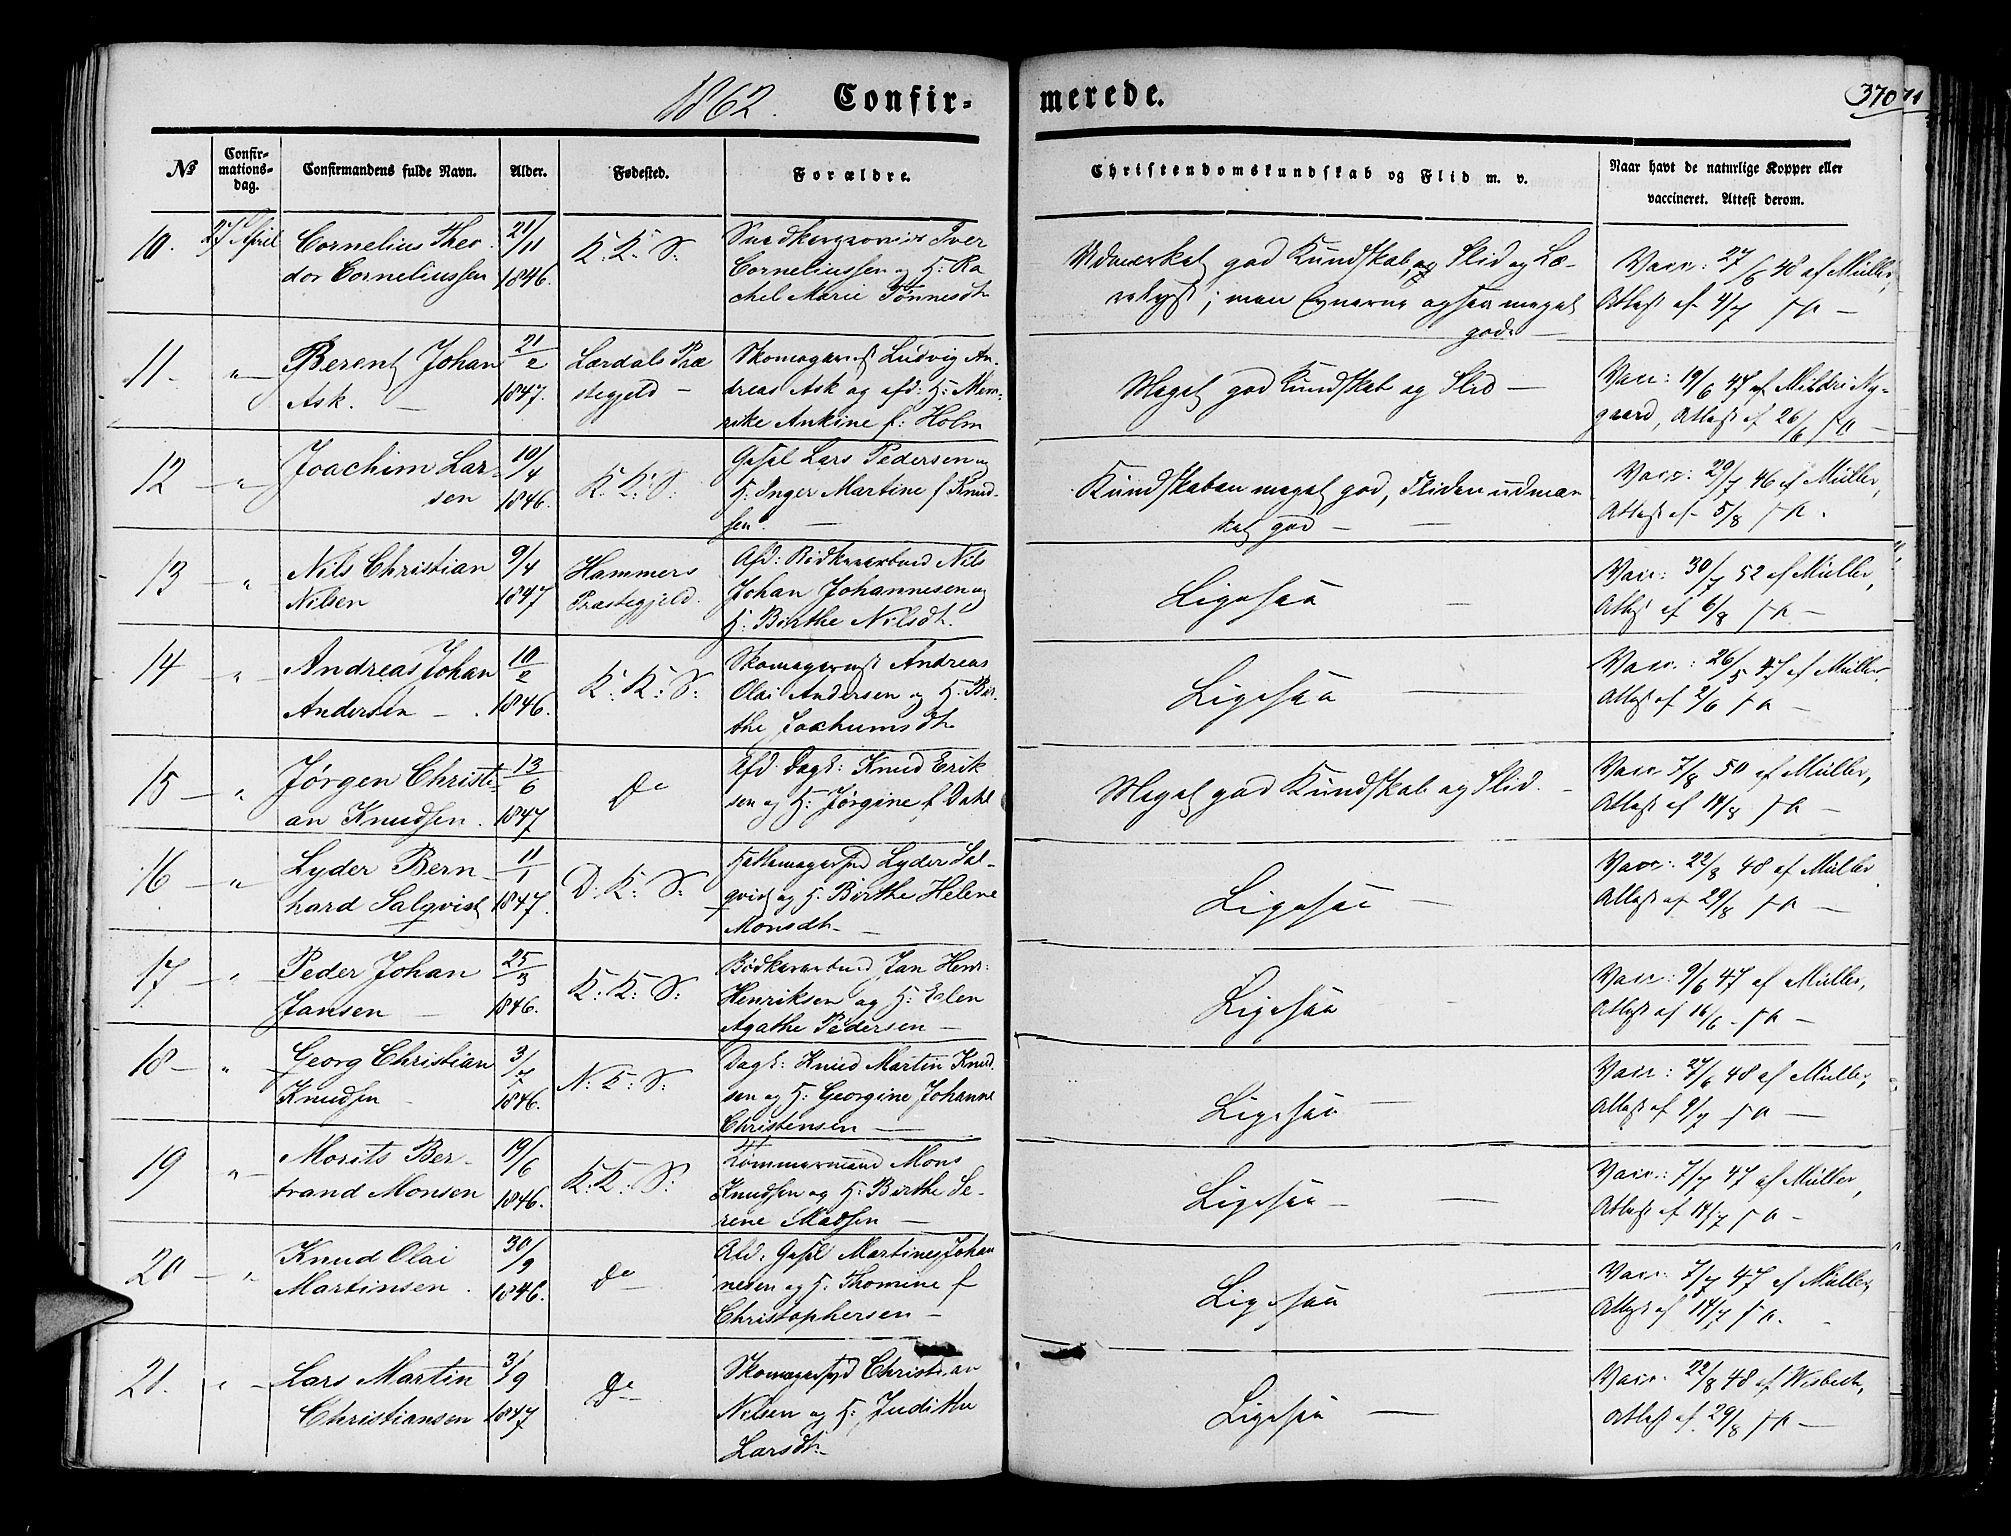 1862. Confir-
merede.
370
71
№
Confir-
mations-
dag.
Confirmandens fulde Navn.
Alder.
Fødested.
Forældre.
Christendomskundskab og Flid m. v.
Naar havt de naturlige Kopper eller
vaccineret. Attest derom.
10. 27 April Cornelius Theo- 21/11 K: K: S: Iver
dor Corneliussen 1846. Corneliussen og H: Ra
chel Marie Tønnesdt.
Udmærket god Kundskab og Flid og Læ-
relyst; men Evnerne ogsaa meget
gode —
Vacc: 27/6 48 af Müller,
Attest af 4/7 s A —
11 — " — Berent Johan 21/2 Lærdals Præ Skomagermst Ludvig An-
Ask. — 1847. stegjeld — dreas Ask og afd: H: Hen-
rike Ankine f: Holm
Meget god Kundskab og Flid —
Vacc: 19/6 47 af Mildri Ny-
gaard, Attest af 26/6 s A —
12 — " Joachim Lar- 10/4 K: K: S: Gasel Lars Pedersen og
sen 1846. H: Inger Martine f Knud-
sen. —
Kundskaben meget god, Fliden udmær
ket god — —
Vacc: 29/7 46 af Müller,
Attest af 5/8 s A.
13 — " Nils Christian 9/4 Hammers Afd: Bødkersvend Nils
Nilsen 1847 Præstegjeld. Johan Johannesen og
H: Birthe Nilsdt.
Ligesaa —
Vacc: 30/7 52 af Müller,
Attest af 6/8 s A —
14 — " — Andreas Johan 10/2 K: K: S: Skomagermst Andreas
Andersen — 1846. Olai Andersen og H: Bir-
the Jochumsdt.
Ligesaa —
Vacc.: 26/5 47 af Müller,
Attest af 2/6 s A —
15 — " Jørgen Christi- 13/6 do Afd: Dagk: Knud Erik
an Knudsen. 1847 sen og H: Jørgine f. Dahl
Meget god Kundskab og Flid. —
Vacc 7/8 50 af Müller,
Attest af 14/8 s A —
16 — " Lyder Bern- 11/1 D: K: S: Lyder Sal-
hard Salqvist 1847. qvist og H: Birthe Helene
Monsdt. —
Ligesaa —
Vacc: 22/8 48 af Müller
Attest af 29/8 s A —
17 — " Peder Johan 25/3 K: K: S: Bødkersvend Jan Henr:
Jansen — 1846. Henriksen og H: Elen
Agathe Pedersen —
Ligesaa
Vacc: 9/6 47 af Müller,
Attest af 16/6 s A —
18 — " Georg Christian 3/7 N: K: S: Dagk: Knud Martin Knud
Knudsen — 1846. sen og H: Georgine Johanne
Christensen —
Ligesaa —
Vacc: 27/6 48 af Müller,
Attest af 9/7 s A —
19 " — Morits Ber- 19/6 K: K: S: Tømmermand Mons
trand Monsen 1846. Knudsen og H: Birthe Se-
rene Madsen —
Ligesaa — —
Vacc: 7/7 47 af Müller,
Attest af 14/7 s A —
20 — " Knud Olai 30/9 do Arb: Gasel Martines Johan
Martinsen. 1846. nesen og H: Thomine f
Christophersen —
Ligesaa —
Vacc: 7/7 47 af Müller,
Attest af 14/7 s A.
21. " — Lars Martin 3/9 do Christian
Christiansen 1847 Nilsen og H: Judithe
Larsdt.
Ligesaa —
Vacc: 22/8 48 af Wisbech,
Attest af. 29/8 s A —